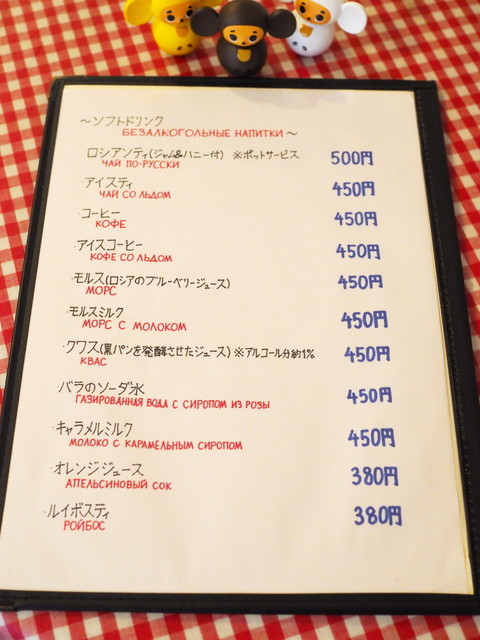 ～ソフトドリンク
БЕЗАЛКОГОЛЬНЫЕ НАПИТКИ～
ロシアンティ(ジャム&ハニー付) ※ポットサービス 500円
ЧАЙ ПО-РУССКИ
・アイスティ 450円
ЧАЙ СО ЛЬДОМ
・コーヒー 450円
КОФЕ
・アイスコーヒー 450円
КОФЕ СО ЛЬДОМ
・モルス(ロシアのブルーベリージュース) 450円
МОРС
・モルスミルク 450円
МОРС С МОЛОКОМ
・クワス(黒パンを発酵させたジュース) ※アルコール分約1% 450円
КВАС
・バラのソーダ水 450円
ГАЗИРОВАННАЯ ВОДА С СИРОПОМ ИЗ РОЗЫ
・キャラメルミルク 450円
МОЛОКО С КАРАМЕЛЬНЫМ СИРОПОМ
・オレンジジュース 380円
АПЕЛЬСИНОВЫЙ СОК
・ルイボスティ 380円
РОЙБОС